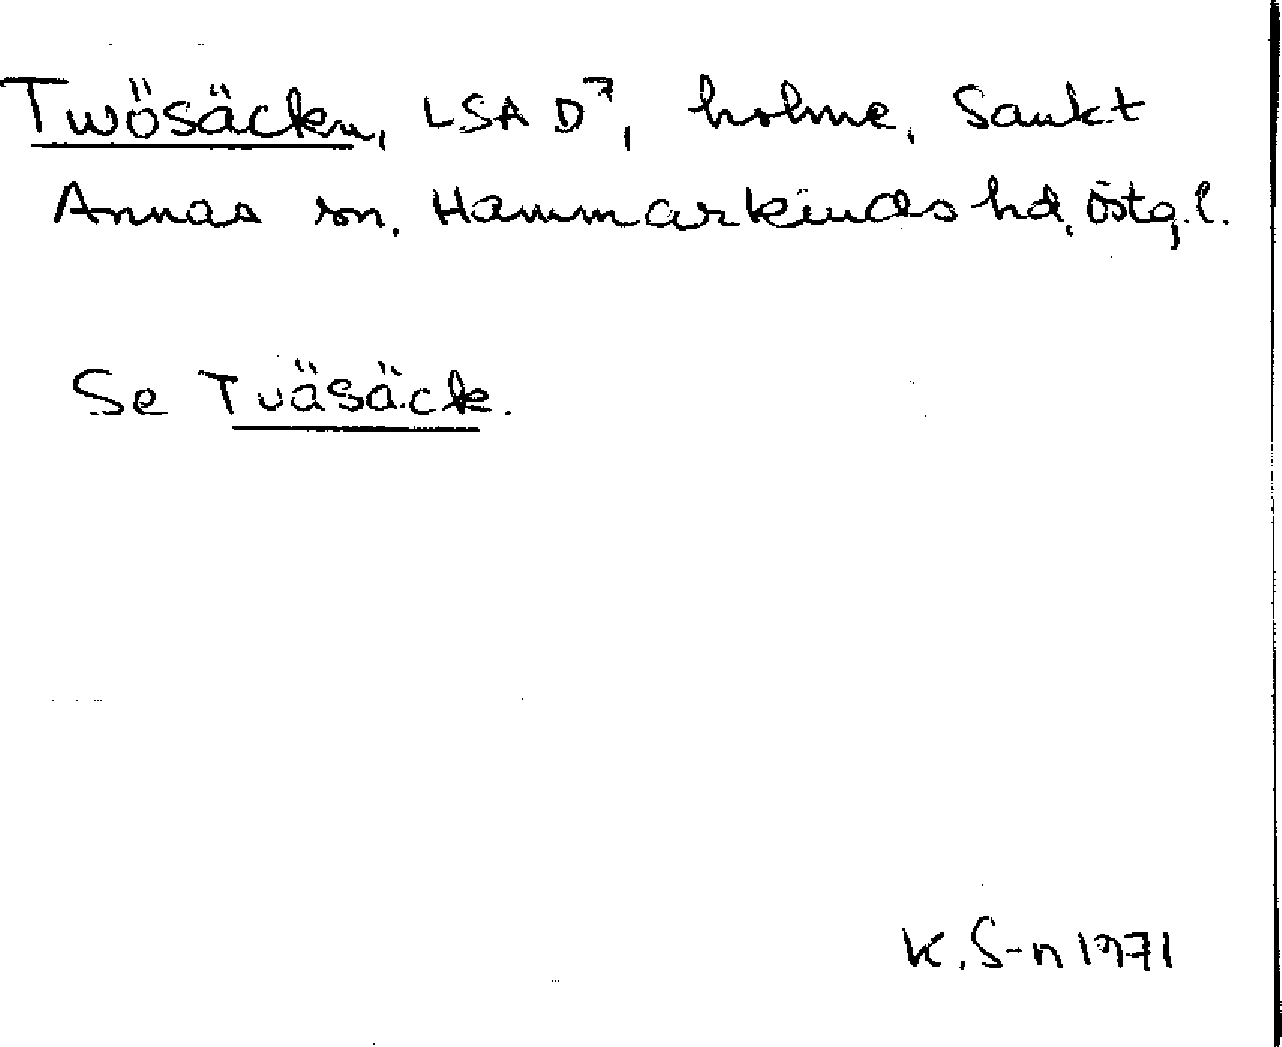 Twösäcken, LSA D⁷, holme, Sankt
Annas sn, Hammarkinds hd, Östg.l.
Se Tväsäck.
K. S-n 1971